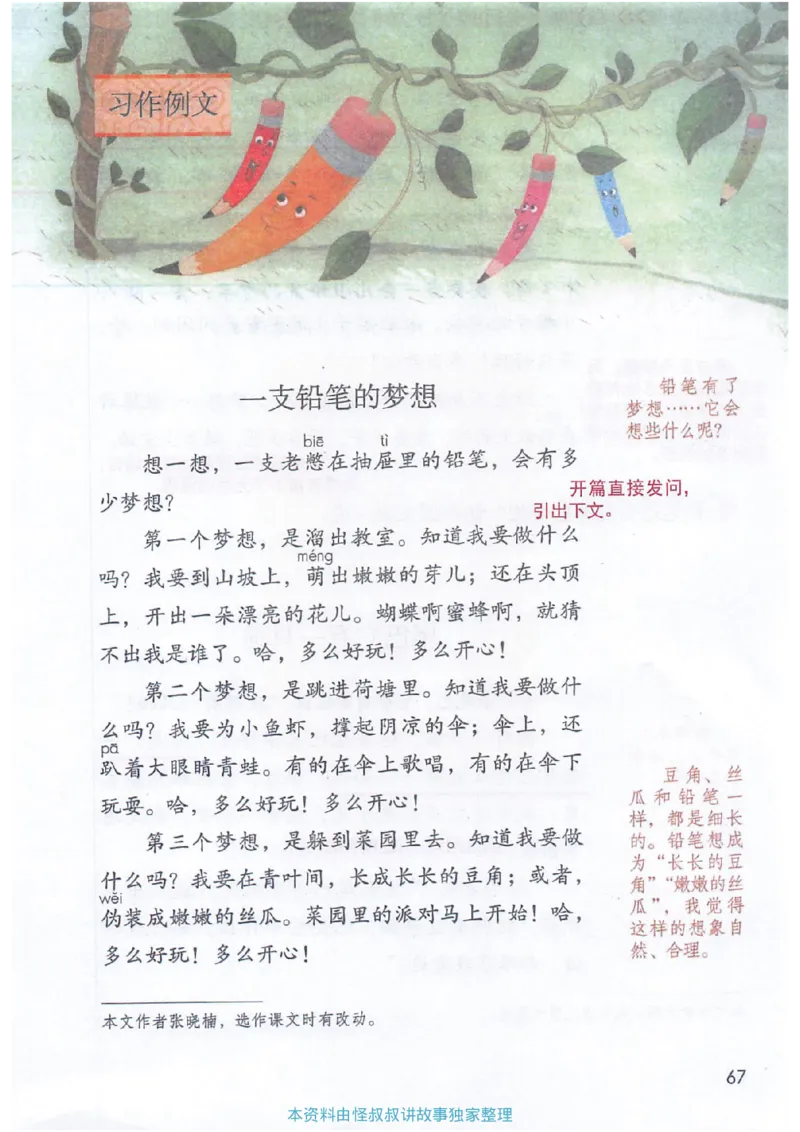 习作例文
一支铅笔的梦想
铅笔有了
梦想……它会
想些什么呢?
biē tì
想一想，一支老憋在抽屉里的铅笔，会有多
少梦想?
开篇直接发问，
引出下文。
第一个梦想，是溜出教室。知道我要做什么
méng
吗? 我要到山坡上，萌出嫩嫩的芽儿；还在头顶
上，开出一朵漂亮的花儿。蝴蝶啊蜜蜂啊，就猜
不出我是谁了。哈，多么好玩！多么开心！
第二个梦想，是跳进荷塘里。知道我要做什
么吗? 我要为小鱼虾，撑起阴凉的伞；伞上，还
pā
趴着大眼睛青蛙。有的在伞上歌唱，有的在伞下
玩耍。哈，多么好玩！多么开心！
第三个梦想，是躲到菜园里去。知道我要做
什么吗? 我要在青叶间，长成长长的豆角；或者，
wěi
伪装成嫩嫩的丝瓜。菜园里的派对马上开始！哈，
多么好玩！多么开心！
豆角、丝
瓜和铅笔一
样，都是细长
的。铅笔想成
为“长长的豆
角”“嫩嫩的丝
瓜”，我觉得
这样的想象自
然、合理。
本文作者张晓楠，选作课文时有改动。
67
本资料由怪叔叔讲故事独家整理